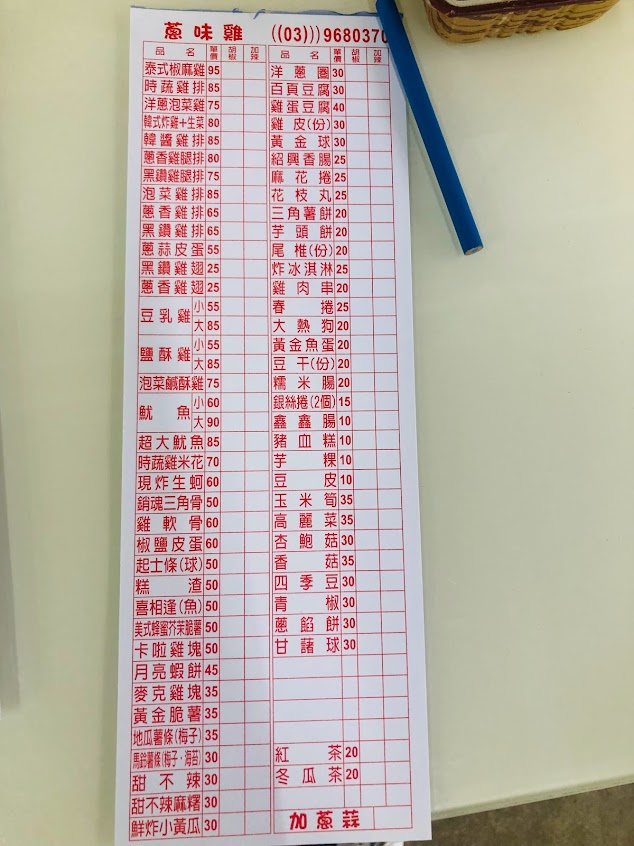 蔥味雞 ((03)))9680370
品名 單價 胡椒 加辣 品名 單價 胡椒 加辣
泰式椒麻雞 95 洋蔥圈 30
時蔬雞排 85 百頁豆腐 30
洋蔥泡菜雞 75 雞蛋豆腐 40
韓式炸雞+生菜 80 雞皮(份) 30
韓醬雞排 85 黃金球 30
蔥香雞腿排 80 紹興香腸 25
黑鑽雞腿排 75 麻花捲 25
泡菜雞排 85 花枝丸 25
蔥香雞排 65 三角薯餅 20
黑鑽雞排 65 芋頭餅 20
蔥蒜皮蛋 55 尾椎(份) 20
黑鑽雞翅 25 炸冰淇淋 25
蔥香雞翅 25 雞肉串 20
豆乳雞 小 55 春捲 25
大 85 大熱狗 20
鹽酥雞 小 55 黃金魚蛋 20
大 85 豆干(份) 20
泡菜鹹酥雞 75 糯米腸 20
魷魚 小 60 銀絲捲(2個) 15
大 90 鑫鑫腸 10
超大魷魚 85 豬血糕 10
時蔬雞米花 70 芋粿 10
現炸生蚵 60 豆皮 10
銷魂三角骨 50 玉米筍 35
雞軟骨 60 高麗菜 35
椒鹽皮蛋 60 杏鮑菇 30
起士條(球) 50 香菇 35
糕渣 50 四季豆 30
喜相逢(魚) 50 青椒 30
美式蜂蜜芥茉脆薯 50 蔥餡餅 30
卡啦雞塊 50 甘藷球 30
月亮蝦餅 45
麥克雞塊 35
黃金脆薯 35
地瓜薯條(梅子) 35
馬鈴薯條(梅子·海苔) 30 紅茶 20
甜不辣 30 冬瓜茶 20
甜不辣麻糬 30
鮮炸小黃瓜 30 加蔥蒜